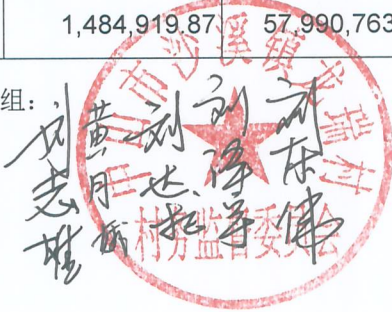 1,484,919.87 57,990,763
组：
中山市沙溪镇龙瑞村
村务监督委员会
刘志雄
黄月
刘达松
刘泽华
刘东伟